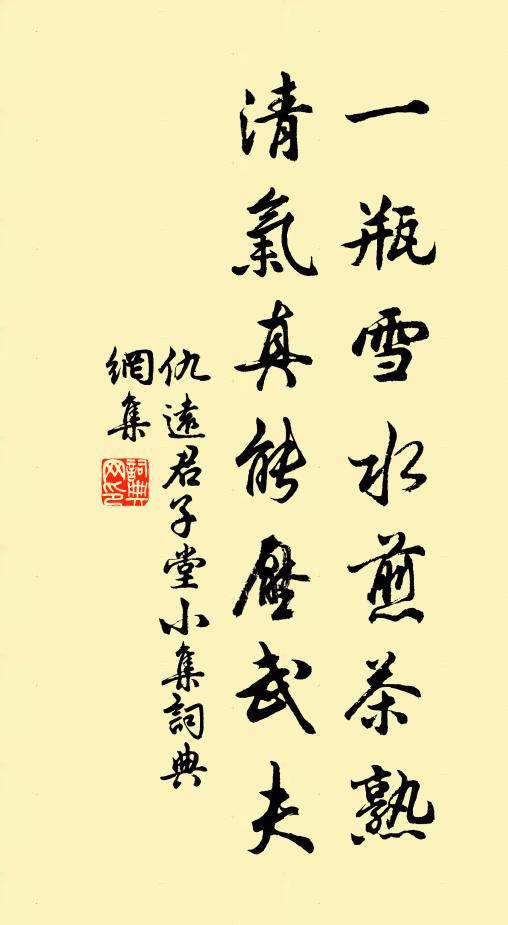 一瓶雪水煎茶熟
清氣真能壓武夫
仇遠君子堂小集詞典
網集
詞典網印